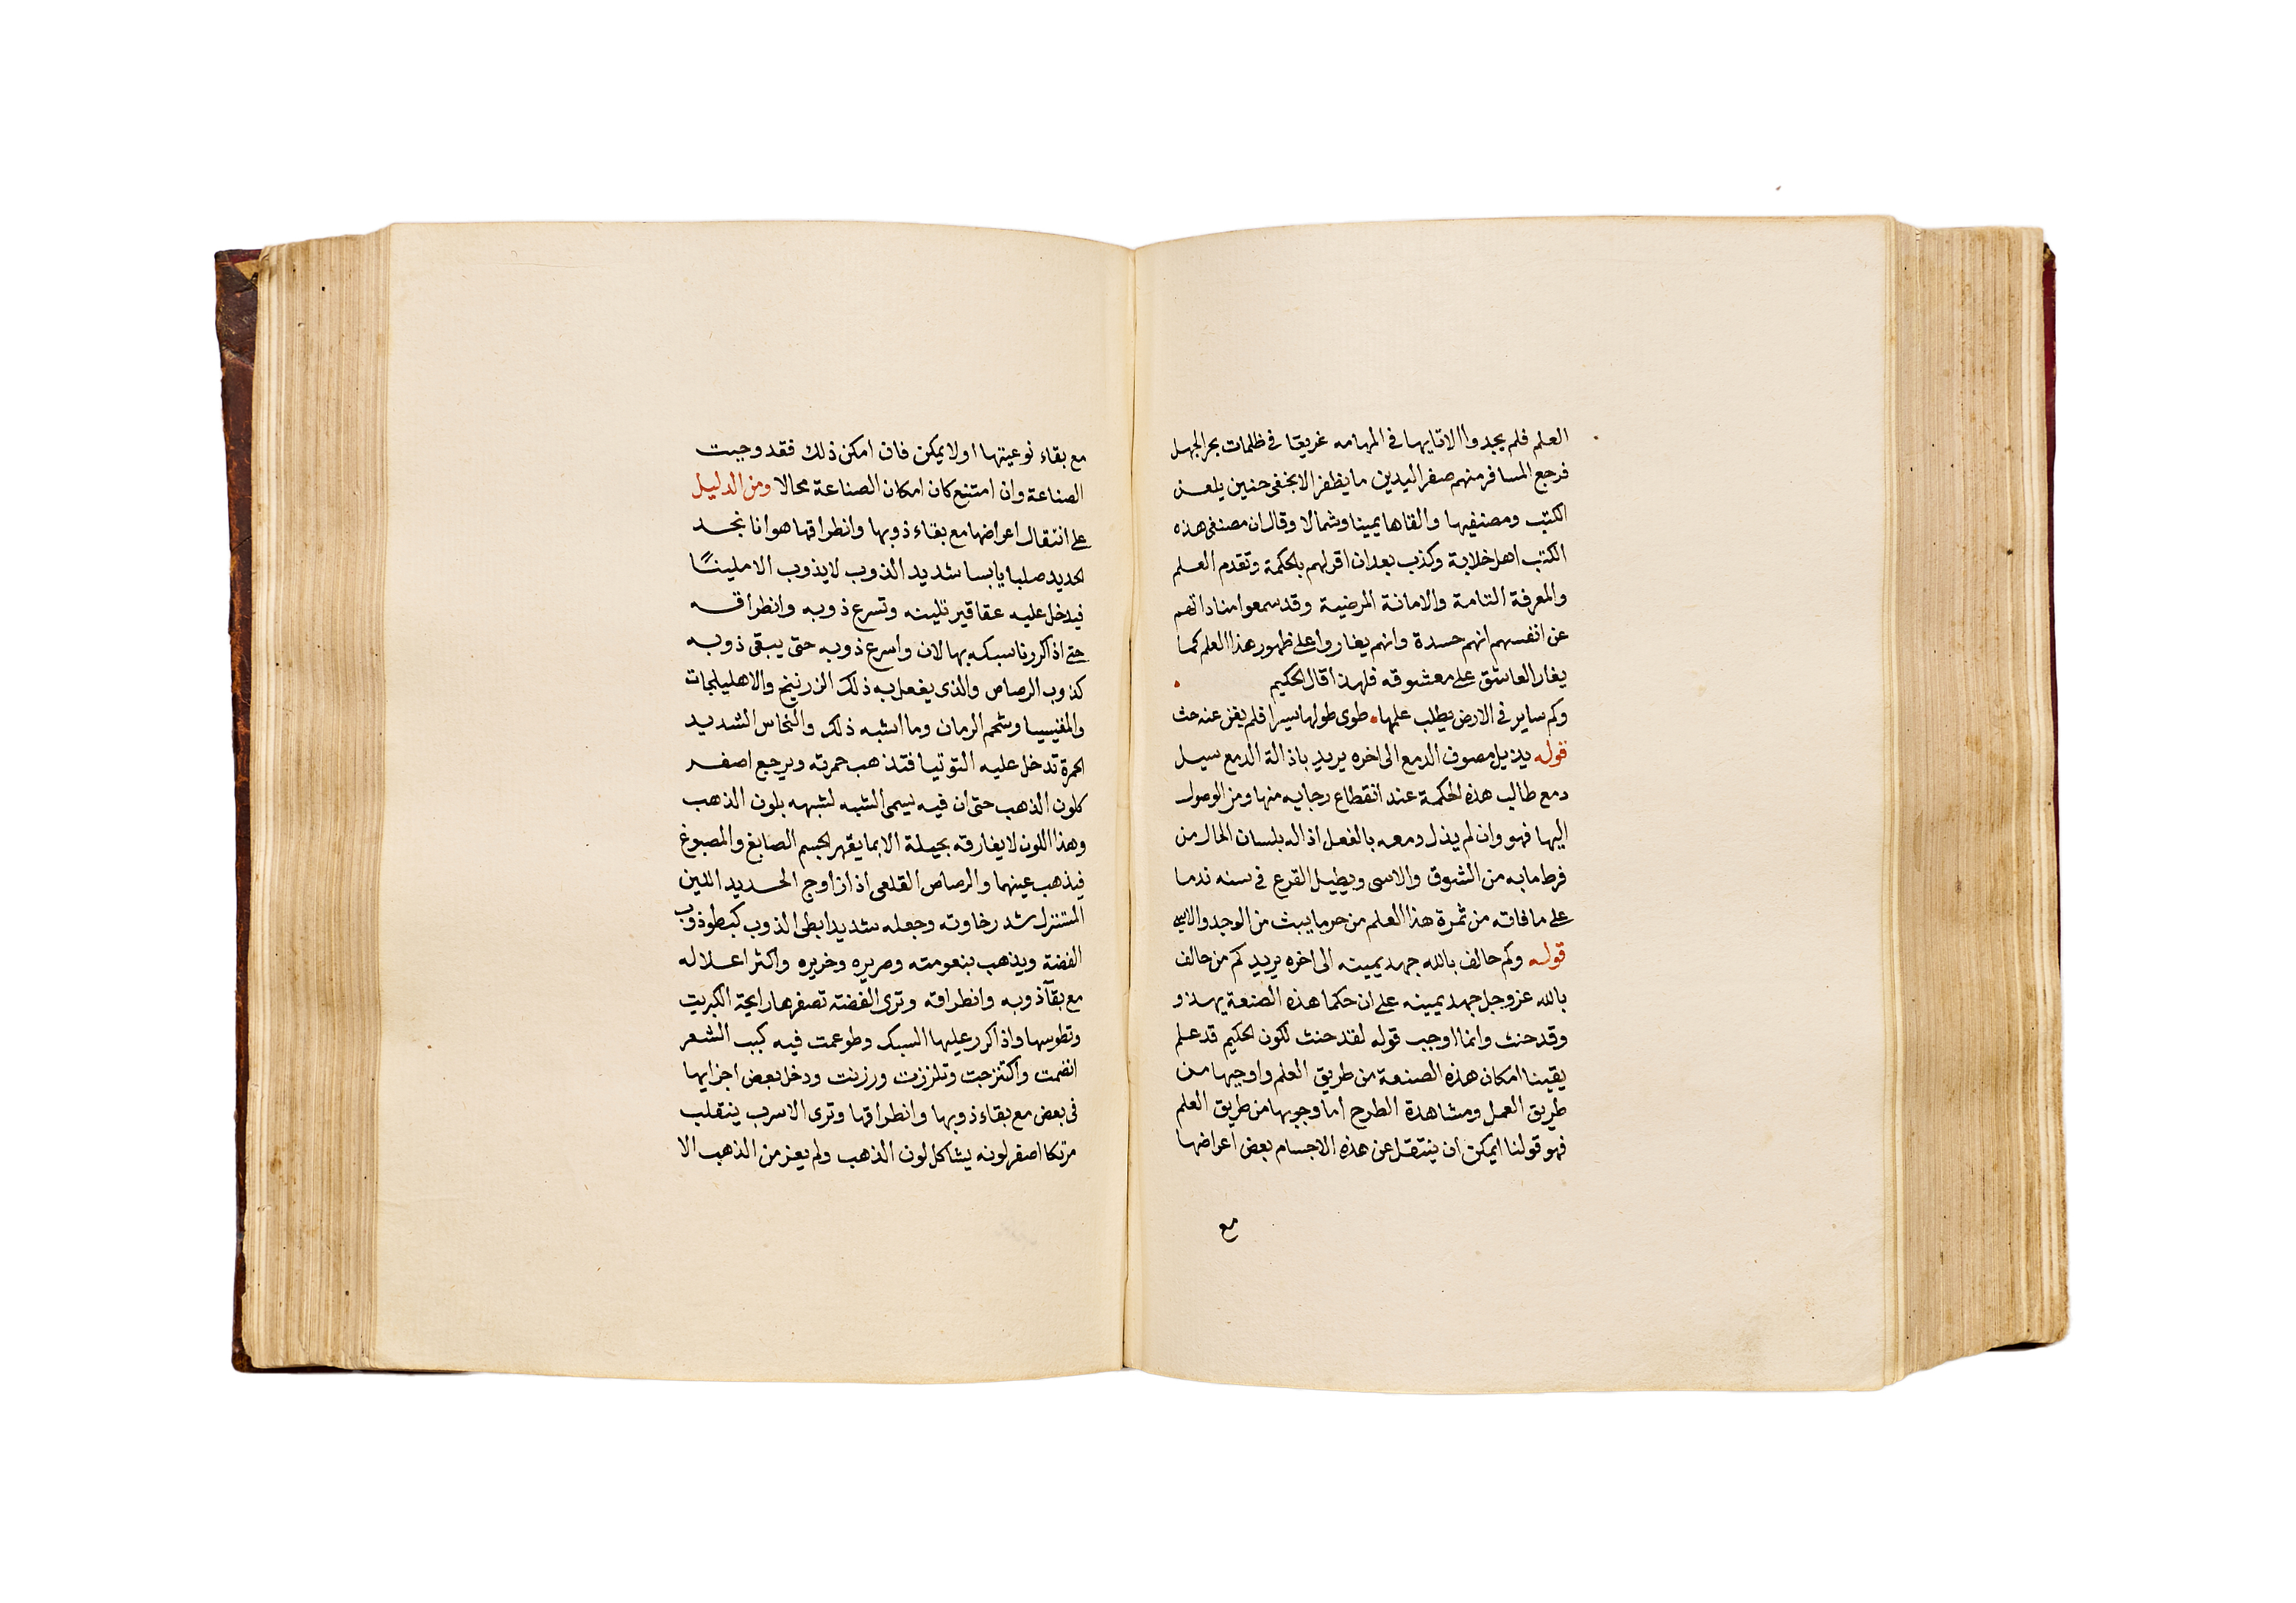 العلم فلم يجدوا الا تايها في المهامه غريقا في ظلمات بحر الجهل
فرجع المسافر منهم صفر اليدين ما يظفر الا بخفى حنين يلعن
الكتب ومصنفيها والقاها يمينا وشمالا وقال ان مصنفى هذه
الكتب اهل خلابة وكذب بعد ان اقر لهم بالحكمة وتقدم العلم
والمعرفة التامة والامانة المرضية وقد سمعوا مناداتهم
عن انفسهم انهم حسدة وانهم يغاروا على ظهور هذا العلم كما
يغار العاشق على معشوقه فلهذا قال الحكيم
وكم ساير في الارض يطلب علمها • طوى طولها سيرا فلم يغن عنه حث
قوله يذيل مصون الدمع الى اخره يريد باذالة الدمع سيل
دمع طالب هذه الحكمة عند انقطاع رجايه منها ومن الوصول
اليها فهو وان لم يذل دمعه بالفعل اذاله بلسان الحال من
فرط ما به من الشوق والاسى ويطيل القرع في سنه ندما
على ما فاته من ثمرة هذا العلم من حر ما يبث من الوجد
قوله وكم حالف بالله جهد يمينه الى اخره يريد كم من حالف
بالله عز وجل جهد يمينه على ان حكما هذه الصنعة يهذو
وقد حنث وانما اوجب قوله لقد حنث لكون الحكيم قد علم
يقينا امكان هذه الصنعة من طريق العلم واوجبها من
طريق العمل ومشاهدة الطرح اما وجوبها من طريق العلم
فهو قولنا ايمكن ان ينتقل عن هذه الاجسام بعض اعراضها
مع
مع بقاء نوعيتها او لا يمكن فان امكن ذلك فقد وجبت
الصناعة وان امتنع كان امكان الصناعة محالا ومن الدليل
على انتقال اعراضها مع بقاء ذوبها وانطراقها هو انا نجد
الحديد صلبا يابسا شديد الذوب لا يذوب الا ملينًا
فيدخل عليه عقاقير تلينه وتسرع ذوبه وانطراقه
حتى اذا كررنا سبكه بها لان واسرع ذوبه حتى يبقى ذوبه
كذوب الرصاص والذى يفعل به ذلك الزرنيخ والاهليلجات
والمغنيسيا وشحم الرمان وما اشبه ذلك والنحاس الشديد
الحمرة تدخل عليه التوتيا فتذهب حمرته ويرجع اصفر
كلون الذهب حتى ان فيه يسمى الشبه لشبهه بلون الذهب
وهذا اللون لا يفارقه بحيلة الا بما يقهر الجسم الصابغ والمصبوغ
فيذهب عينهما والرصاص القلعى اذا زاوج الحديد اللين
المستنزل شد رخاوته وجعله شديدا بطى الذوب كبطو ذوب
الفضة ويذهب بنعومته وصريره وخريره واكثر اعلاله
مع بقآ ذوبه وانطراقه وترى الفضة تصفرها رايحة الكبريت
وتطوسها واذا كرر عليها السبك وطوعمت فيه كبب الشعر
انضمت واكتنزجت وتلززت ورزنت ودخل بعض اجزايها
فى بعض مع بقاء ذوبها وانطراقها وترى الاسرب ينقلب
مرتكا اصفر لونه يشاكل لون الذهب ولم يعز من الذهب الا